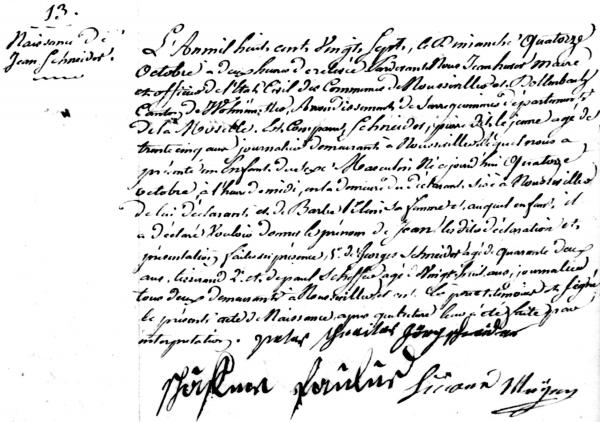 13.
Naissance de
Jean Schneider.
L'An mil huit cent Vingt Sept, le Dimanche Quatorze
Octobre à deux heures de relevée Pardevant Nous Jean maire
et officier de l'Etat Civil des Communes de Nousseviller
Canton de Wolmünster, Arrondissement de Sarreguemines département
de la Moselle. Est Comparu Schneider, pierre le jeune agé de
trente cinq ans journalier demeurant à Nousseviller lequel nous a
présenté un Enfant du sexe Masculin Né aujourd'hui Quatorze
octobre à l'heure de midi, en la demeure du déclarant, sise à Nousseviller
de lui déclarant et de Barbe sa femme, auquel enfant, il
a déclaré Vouloir donner le prénom de Jean les dites déclaration et
présentation faites en présence, 1° de Georges Schneider agé de quarante deux
ans, tisserand 2° et de paul Scheffer agé de Vingt huit ans, journalier
tous deux demeurants à Nousseviller et ont le père et témoins signé
le présent acte de Naissance, après que lecture leur a été faite par
interprétation. peter Schneider Görg Schneider
Schäffner Paulus